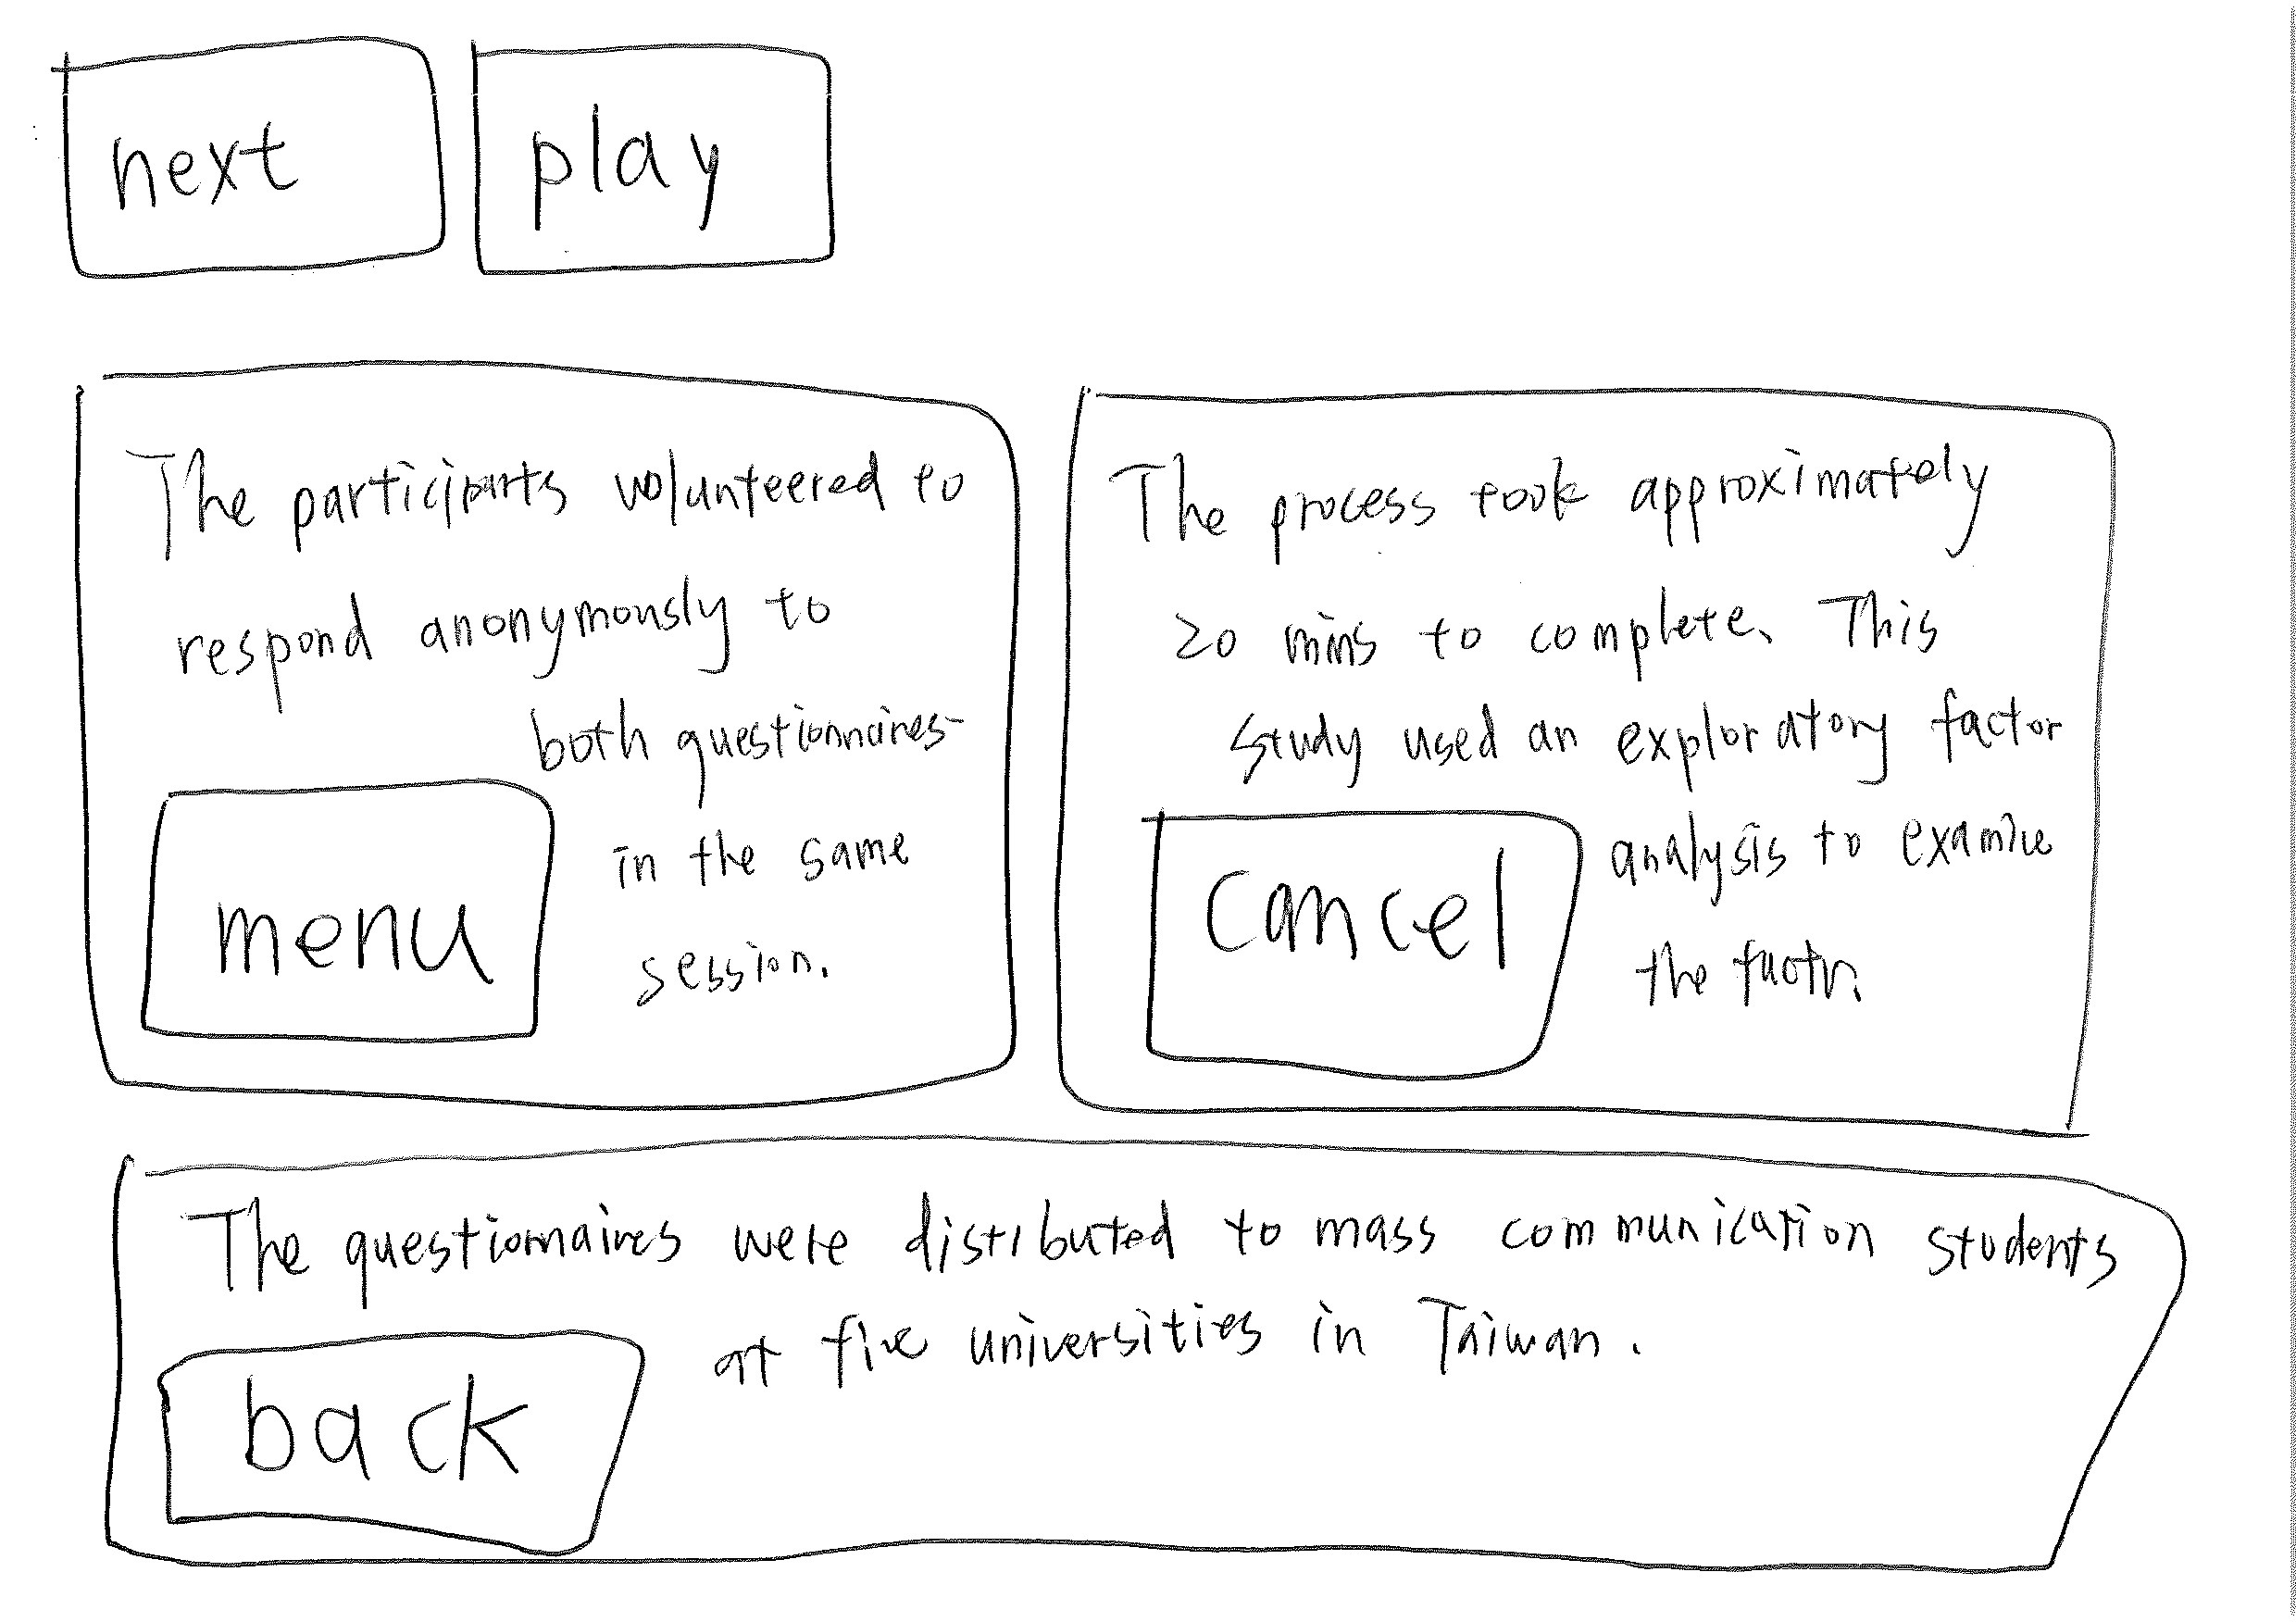 next
play
The participants volunteered to
respond anonymously to
both questionnaires
in the same
session.
menu
The process took approximately
20 mins to complete. This
study used an exploratory factor
analysis to examine
the
cancel
The questionnaires were distributed to mass communication students
at five universities in Taiwan.
back